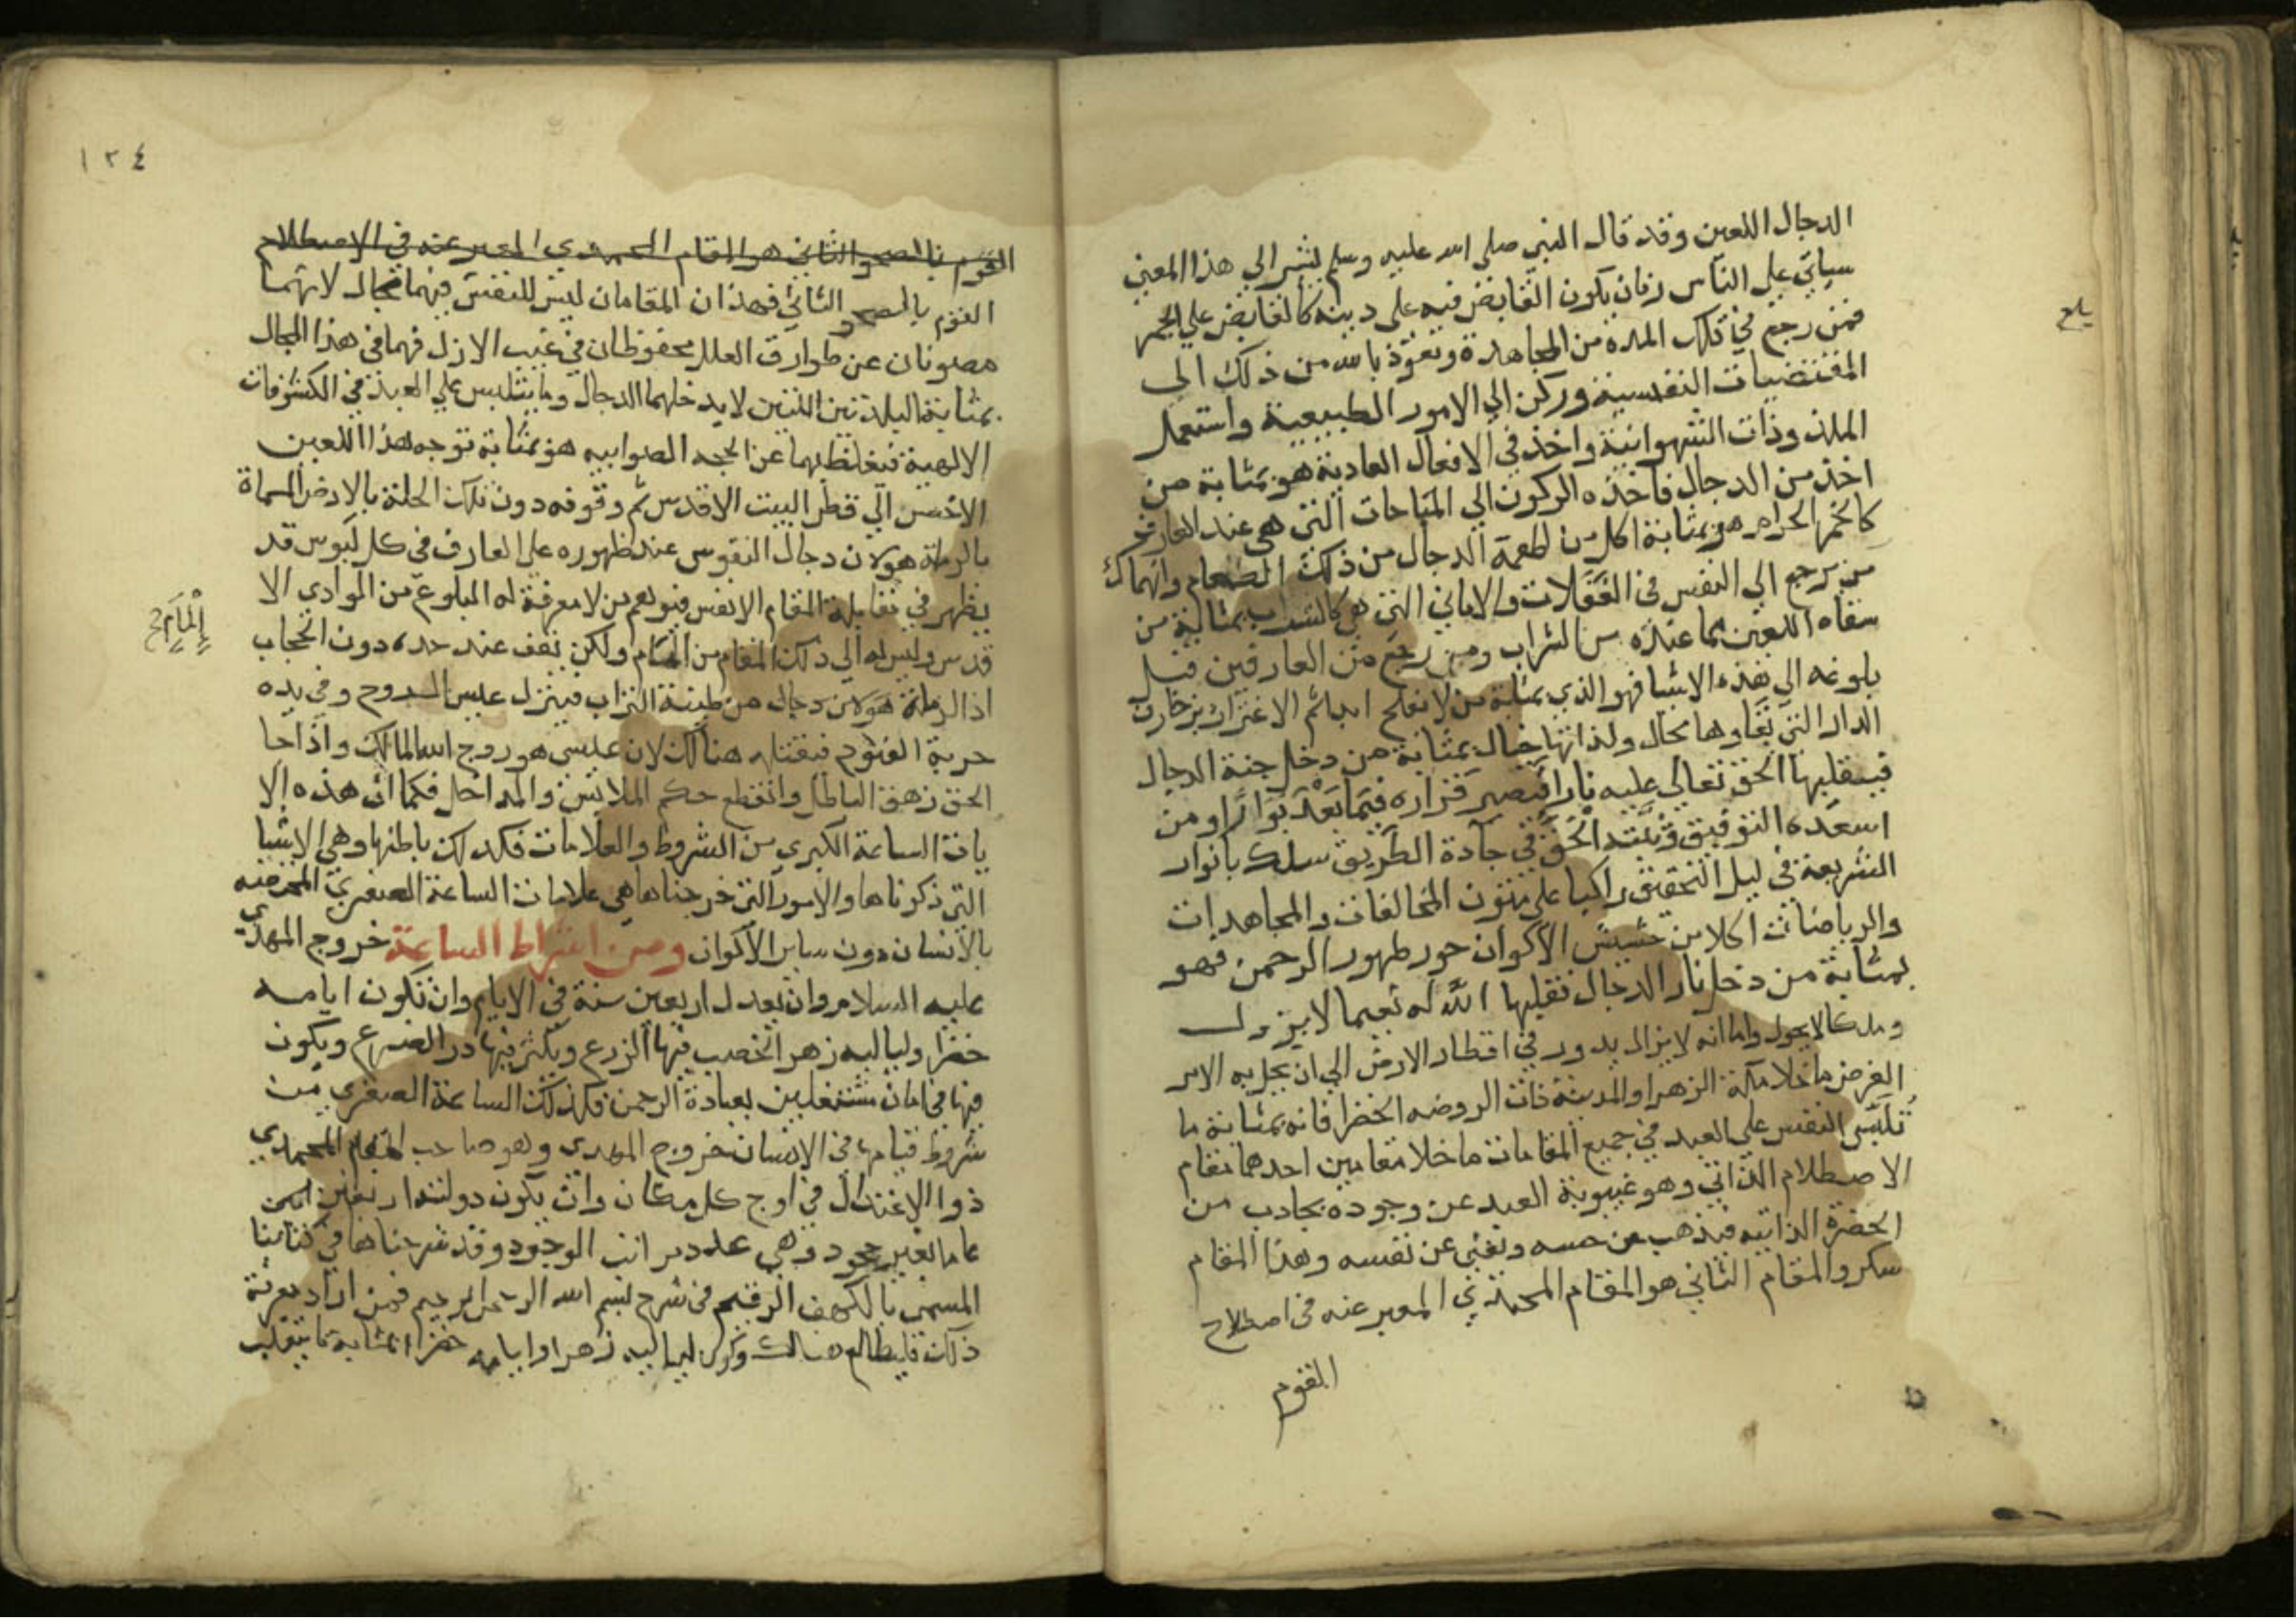 الدجال اللعين وقد قال النبي صلى الله عليه وسلم لنشير الي هذا المعني
سياتي علي الناس زمان يكون القابض فيه على دينه كالقابض علي الجمر
فمن رجع في تلك المدة من المجاهدة ونعوذ بالله من ذلك الى
المقتضيات النفسية وركن الي الامور الطبيعية واستعمل
الملذوذات الشهوانية واخذ في الافعال العادية هو بمثابة من
اخذ من الدجال فاخذه الركون الي المباحات التي هي عند العارف
كالخمر الحرام هو بمثابة اكل من اطعمه الدجال من ذلك الطعام وانهماك
من يرجع الي النفس في الغفلات والاماني التي هي كالشراب بمثابة من
سقاه اللعين مما عنده من الشراب ومن رجع من العارفين قبل
بلوغه الي هذه الاشيا فهو الذي بمثابة من لا يفلح ابدا ثم الاغترار بزخارف
الدار التي بقاوها محال ولذاتها خيال بمثابة من دخل جنة الدجال
فيقلبها الحق تعالي عليه نارا فتصير قراره فيما بعد بوارا ومن
اسعده التوفيق وثبته الحق في جادة الطريق سلك بانوار
الشريعة في ليل التحقيق راكبا علي متون المخالفات والمجاهدات
والرياضات اكلا من حشيش الاكوان حور ظهور الرحمن فهو
بمثابة من دخل نار الدجال فقلبها الله له نعيما لا يزول
وملكا لا يحول واما انه لا يزال يدور في اقطار الارض الي ان يجل به الامر
الغرض ما خلا مكة الزهرا والمدينة ذات الروضه الخضرا فانه بمثابة ما
تلبس النفس علي العبد في جميع المقامات ما خلا مقامين احدهما مقام
الاصطلام الذاتي وهو غيبوبة العبد عن وجوده بجاذب من
الحضرة الذاتيه فيذهب عن حسه ويفني عن نفسه وهذا المقام
سكر والمقام الثاني هو المقام المحمدي المعبر عنه في اصطلاح
القوم
بلغ
١٢٤
القوم بالصحو الثاني هو المقام المحمدي المعبر عنه في الاصطلاح
القوم بالصحو الثاني فهذان المقامان ليس للنفس فيهما مجال لانهما
مصونان عن طوارق العلل محفوظان في غيب الازل فهما في هذا المجال
بمثابة البلدتين اللتين لا يدخلهما الدجال وما يتلبس علي العبد في الكشوفات
الالهية فيغلط بهما عن الحجه الصوابيه هو بمثابة توجه هذا اللعين
الاخس الي قطر البيت الاقدس ثم وقوفه دون تلك الحلة بالارض المسماة
بالرملة هو لان دجال النفوس عند ظهوره على العارف في كل لبوس قد
يظهر في مقابلة المقام الانفس فيوهم من لا معرفة له البلوغ من الوادي الا
قدس وليس له الي ذلك المقام من المام ولكن يقف عند حده دون الحجاب
اذ الرملة هو لان دجال من طينة التراب فينزل عيسى الروح وفي يده
حربة الفتوح فيقتله هنالك لان عيسي هو روح الله المالك واذا جا
الحق زهق الباطل وانقطع حكم الملابس والمداخل فكما ان هذه الا
يات الساعة الكبري من الشروط والعلامات فكذلك باطنها وهي الاشيا
التي ذكرناها والامور التي خرجناها هي علامات الساعة الصغري المختصه
بالانسان دون ساير الاكوان ومن اشراط الساعة خروج المهدي
عليه السلام وان يعدل اربعين سنة في الايام وان تكون ايامه
خضرا ولياليه زهر الخصب فيها الزرع ويكثر فيها در الضرع ويكون
فيها في امان مشتغلين بعبادة الرحمن فكذلك الساعة الصغري من
شروط قيامها في الانسان خروج المهدي وهو صاحب المقام المحمدي
ذو الاعتدال في اوج كل مكان وان يكون دولته اربعين
عاما لغير جحود وهي عدد مراتب الوجود وقد شرحناها في كتابنا
المسمى بالكهف الرقيم في شرح بسم الله الرحمن الرحيم فمن اراد معرفة
ذلك فليطالع هنالك وكون لياليه زهرا وايامه خضرا بمثابة ما يتقلب
المام